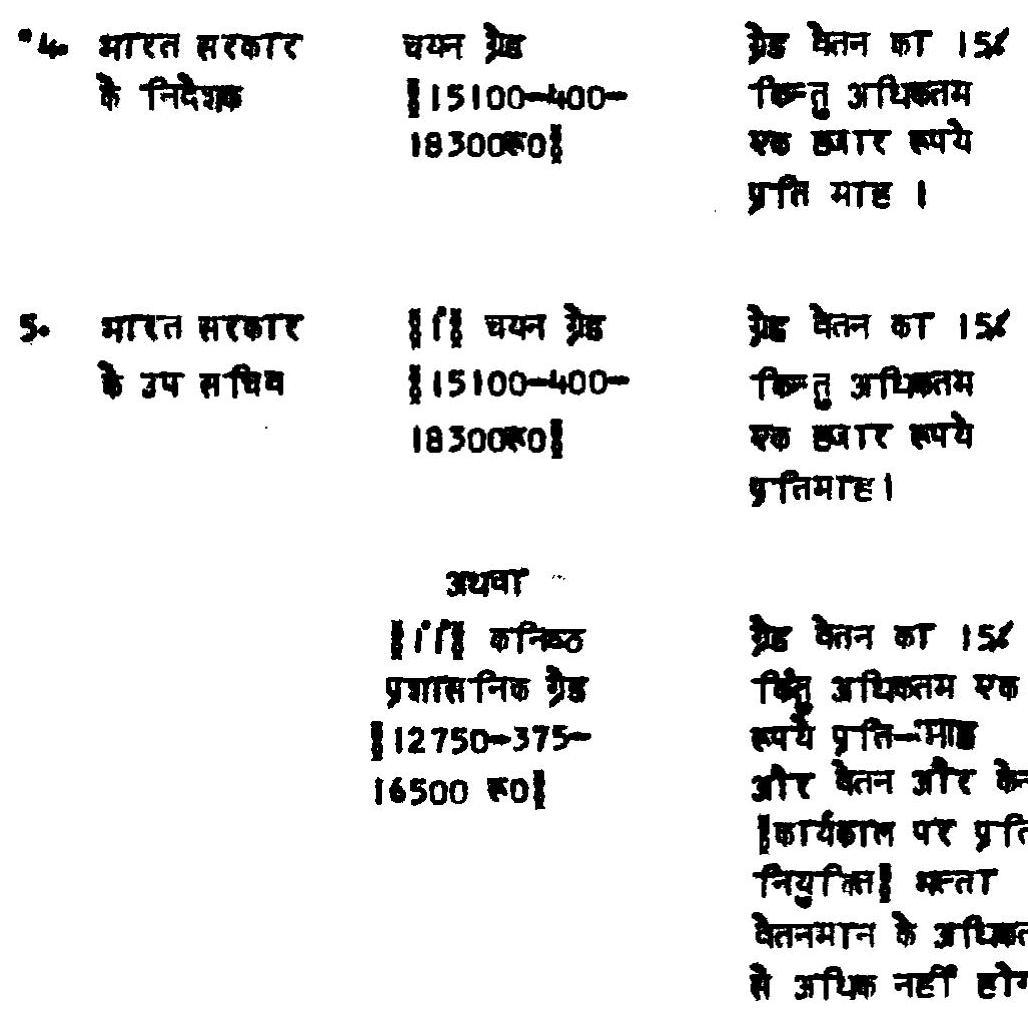 "4. भारत सरकार चयन ग्रेड ग्रेड वेतन का 15%
के निदेशक (15100-400- किन्तु अधिकतम
18300रू0) एक हजार रूपये
प्रति माह ।
5. भारत सरकार (i) चयन ग्रेड ग्रेड वेतन का 15%
के उप सचिव (15100-400- किन्तु अधिकतम
18300रू0) एक हजार रूपये
प्रतिमाह।
अथवा
(ii) कनिष्ठ ग्रेड वेतन का 15%
प्रशासनिक ग्रेड किंतु अधिकतम एक
(12750-375- रूपये प्रति-माह
16500 रू0) और वेतन और
(कार्यकाल पर प्रति
नियुक्ति) भत्ता
वेतनमान के
से अधिक नहीं